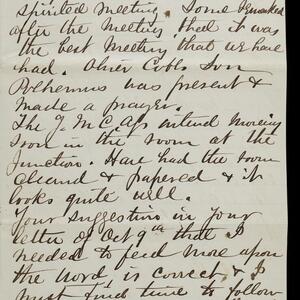 spirited meeting. Some remarked
after the meeting that it was
the best meeting that we have
had. Oliver Cobbs Son
Polhemus was present &
made a prayer.
The Y.M.C.A's intend moving
soon in the room at the
Junction. Have had the room
cleaned & papered & it
looks quite well.
Your suggestion in your
letter of Oct 9th that I
needed to feed more upon
the Word is correct, & I
must find time to follow